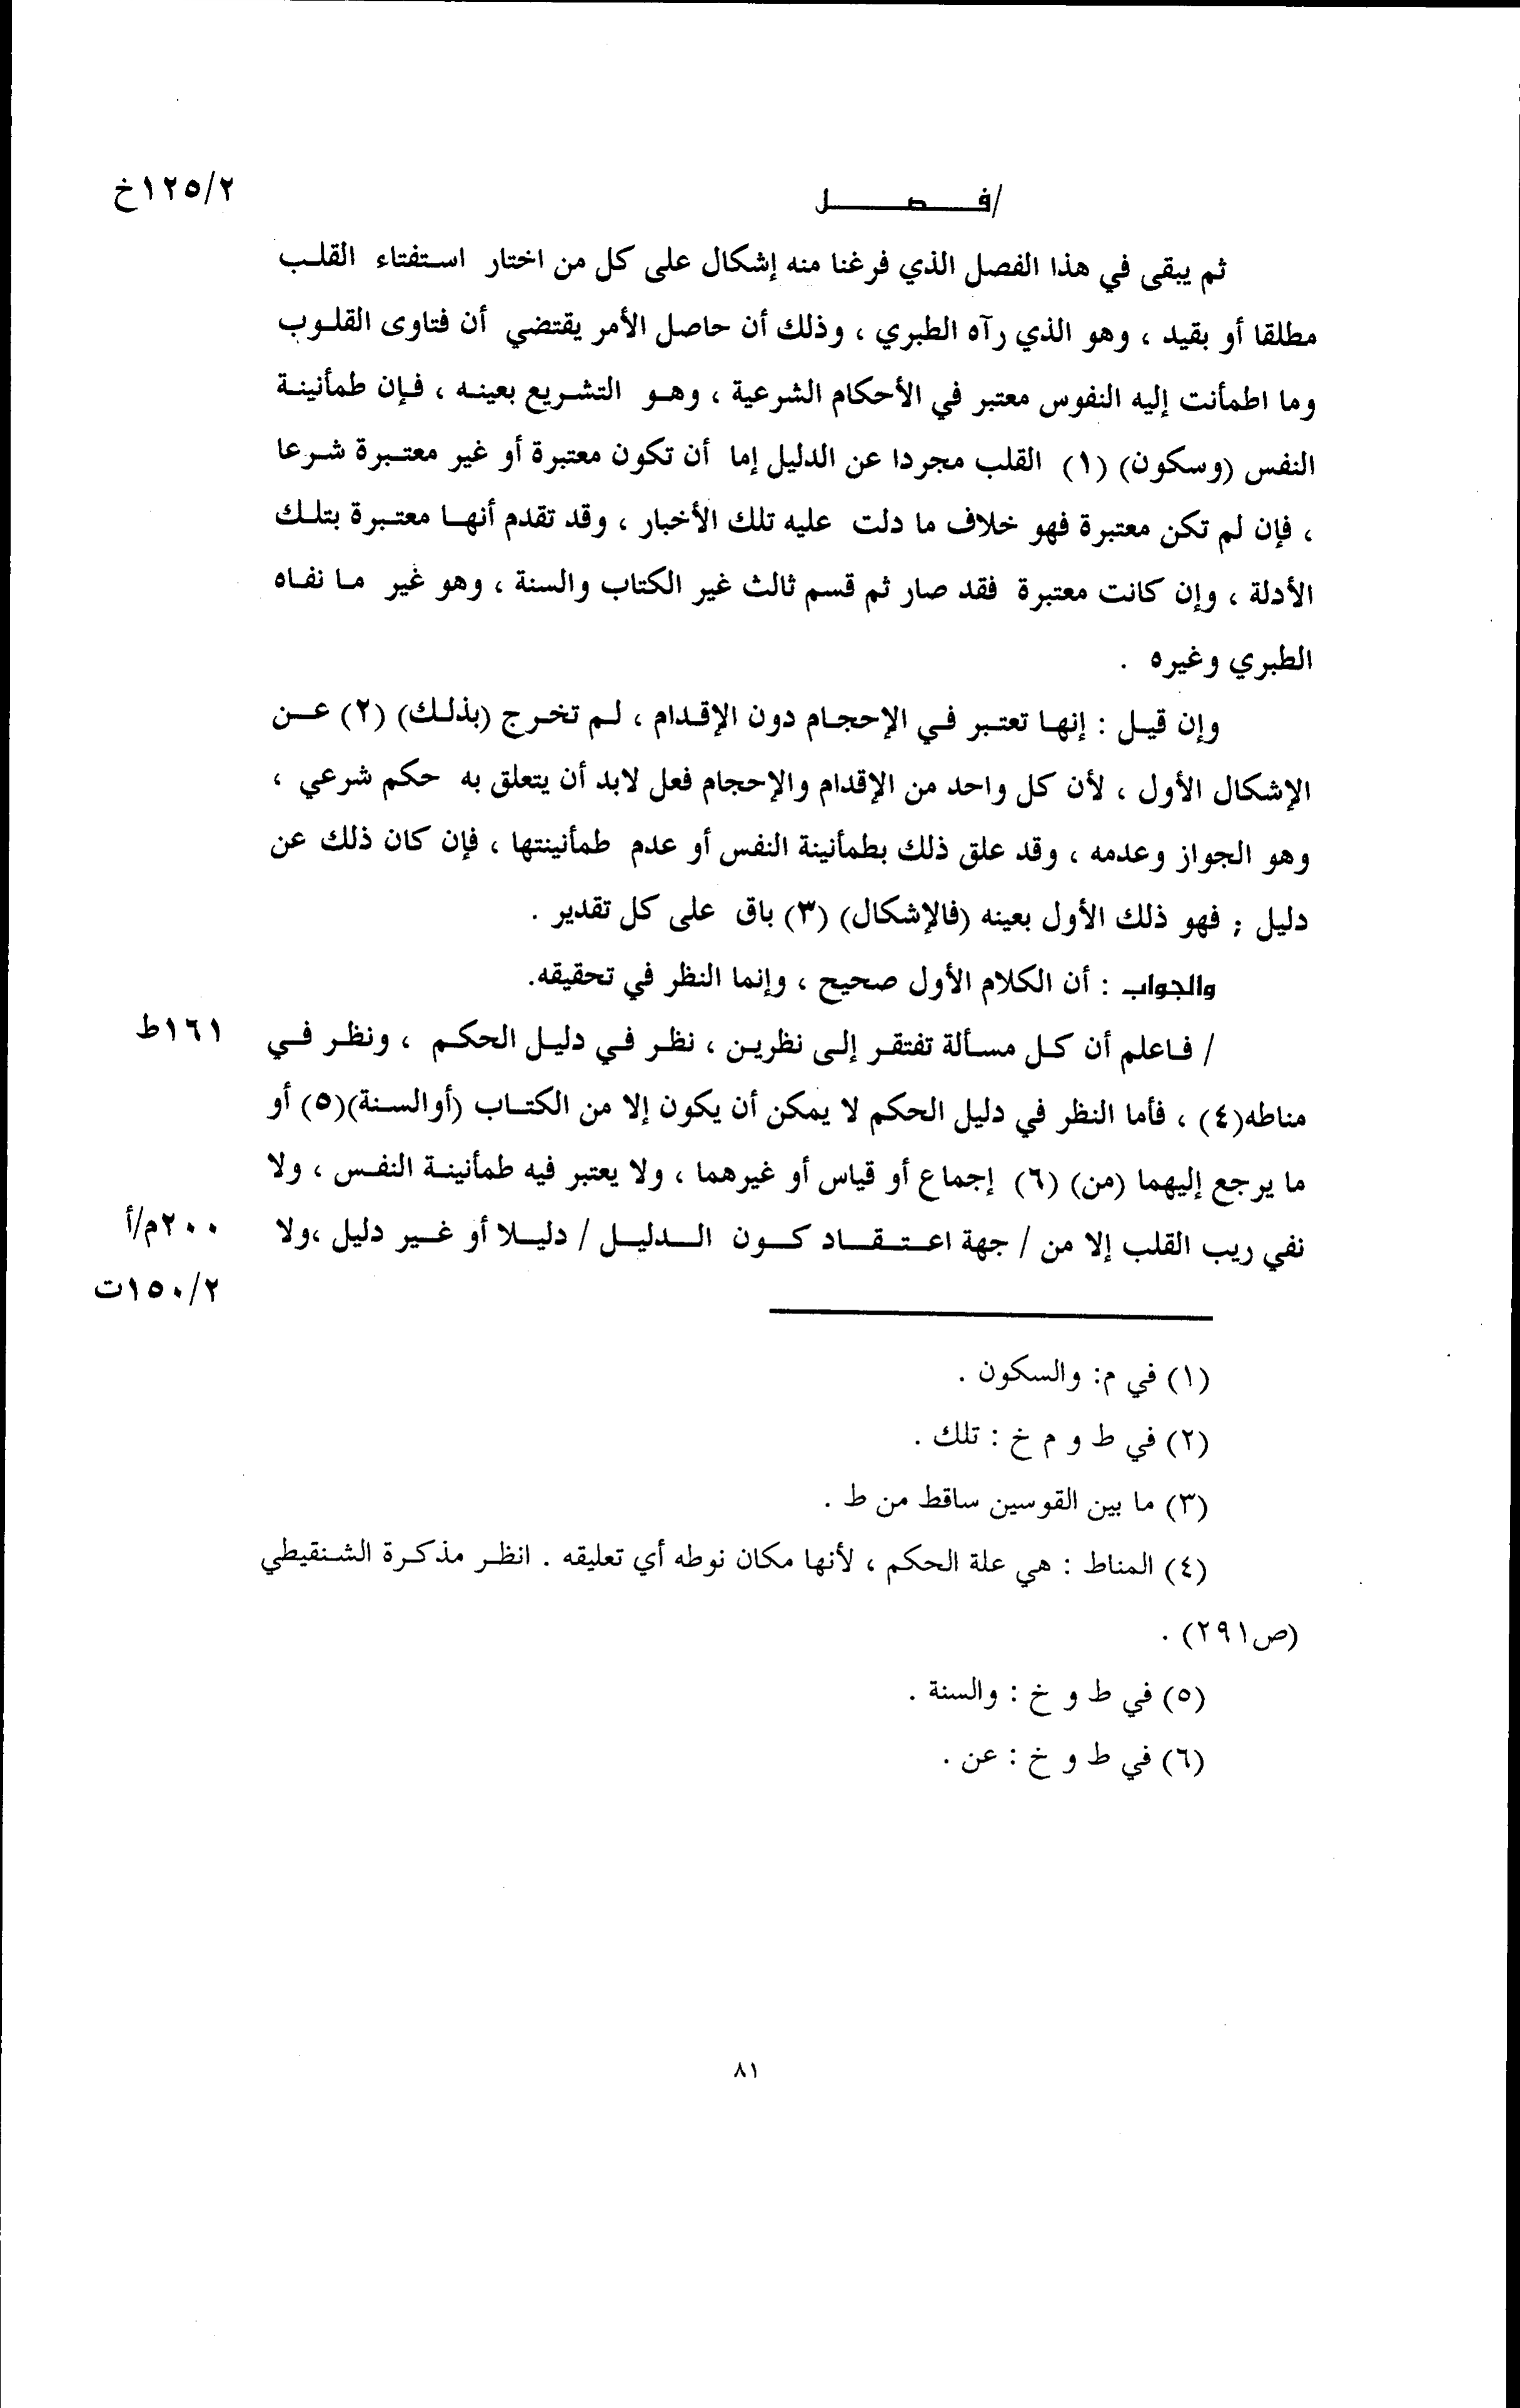 /فـــصـــل
١٢٥/٢خ
ثم يبقى في هذا الفصل الذي فرغنا منه إشكال على كل من اختار استفتاء القلب
مطلقا أو بقيد ، وهو الذي رآه الطبري ، وذلك أن حاصل الأمر يقتضي أن فتاوى القلوب
وما اطمأنت إليه النفوس معتبر في الأحكام الشرعية ، وهو التشريع بعينه ، فإن طمأنينة
النفس (وسكون) (١) القلب مجردا عن الدليل إما أن تكون معتبرة أو غير معتبرة شرعا
، فإن لم تكن معتبرة فهو خلاف ما دلت عليه تلك الأخبار ، وقد تقدم أنها معتبرة بتلك
الأدلة ، وإن كانت معتبرة فقد صار ثم قسم ثالث غير الكتاب والسنة ، وهو غير ما نفاه
الطبري وغيره .
وإن قيل : إنها تعتبر في الإحجام دون الإقدام ، لم تخرج (بذلك) (٢) عن
الإشكال الأول ، لأن كل واحد من الإقدام والإحجام فعل لابد أن يتعلق به حكم شرعي ،
وهو الجواز وعدمه ، وقد علق ذلك بطمأنينة النفس أو عدم طمأنينتها ، فإن كان ذلك عن
دليل ; فهو ذلك الأول بعينه (فالإشكال) (٣) باق على كل تقدير .
والجواب : أن الكلام الأول صحيح ، وإنما النظر في تحقيقه.
/ فاعلم أن كل مسألة تفتقر إلى نظرين ، نظر في دليل الحكم ، ونظر في
١٦١ط
مناطه(٤) ، فأما النظر في دليل الحكم لا يمكن أن يكون إلا من الكتاب (أوالسنة)(٥) أو
ما يرجع إليهما (من) (٦) إجماع أو قياس أو غيرهما ، ولا يعتبر فيه طمأنينة النفس ، ولا
نفي ريب القلب إلا من / جهة اعتقاد كون الدليل / دليلا أو غير دليل ،ولا
٢٠٠م/أ
١٥٠/٢ت
(١) في م: والسكون .
(٢) في ط و م خ : تلك .
(٣) ما بين القوسين ساقط من ط .
(٤) المناط : هي علة الحكم ، لأنها مكان نوطه أي تعليقه . انظر مذكرة الشنقيطي
(ص٢٩١) .
(٥) في ط و خ : والسنة .
(٦) في ط و خ : عن .
٨١